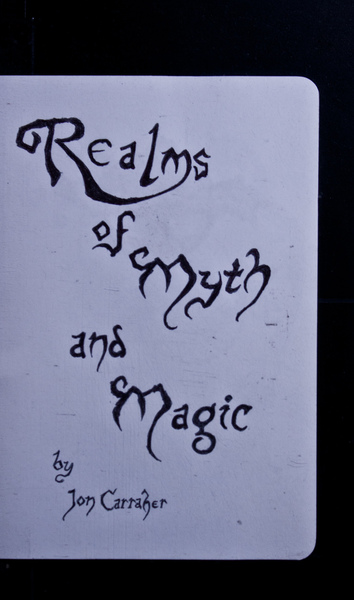 Realms
of
Myth
and
Magic
by
Jon Carraher